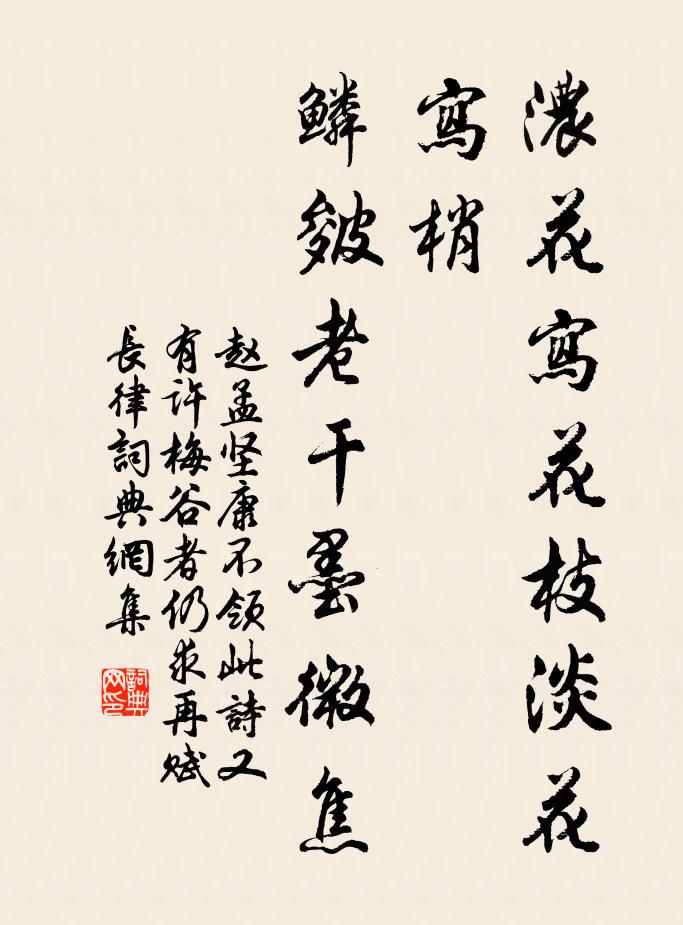 濃花寫花枝淡花
寫梢
鱗皴老干墨微焦
赵孟坚康不領此詩又
有許梅谷者仍求再賦
長律詞典網集
詞典网印